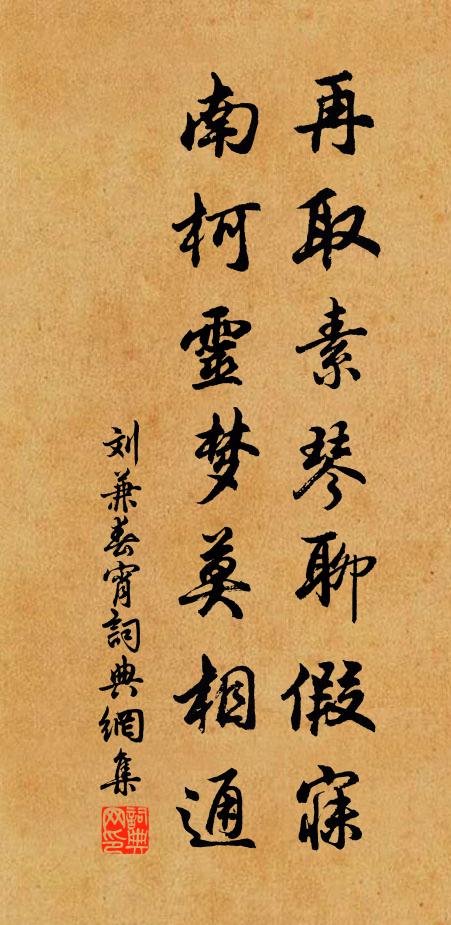 再取素琴聊假寐
南柯靈梦莫相通
刘兼春宵詞典網集
詞典网印